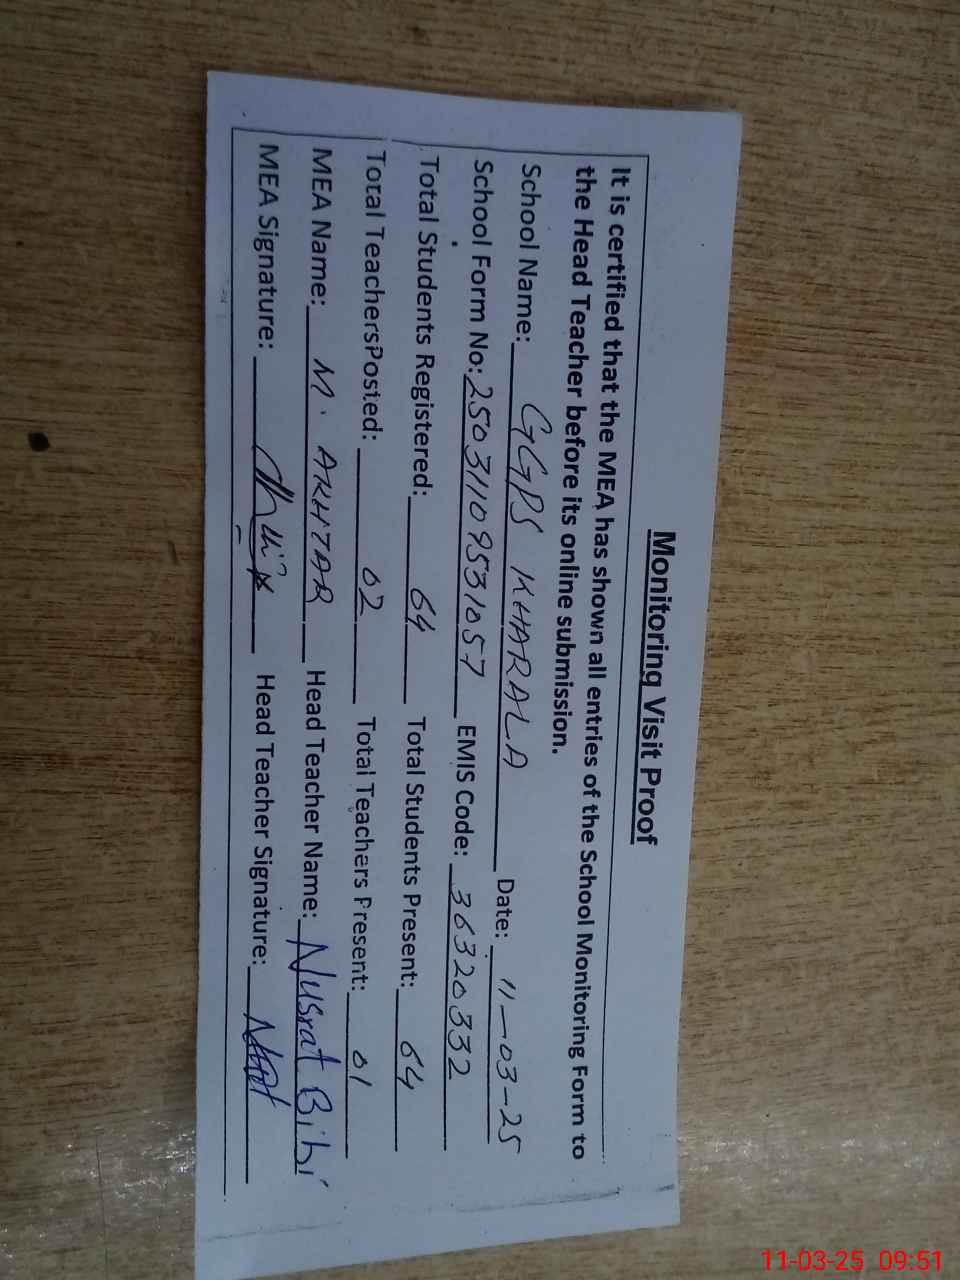 Monitoring Visit Proof
It is certified that the MEA has shown all entries of the School Monitoring Form to
the Head Teacher before its online submission.
School Name: GGPS KHARALA Date: 11-03-25
School Form No: 25031109531057 EMIS Code: 36320332
Total Students Registered: 64 Total Students Present: 64
Total TeachersPosted: 02 Total Teachers Present: 01
MEA Name: M. AKHTAR Head Teacher Name: Nusrat Bibi
MEA Signature: Head Teacher Signature:
11-03-25 09:51